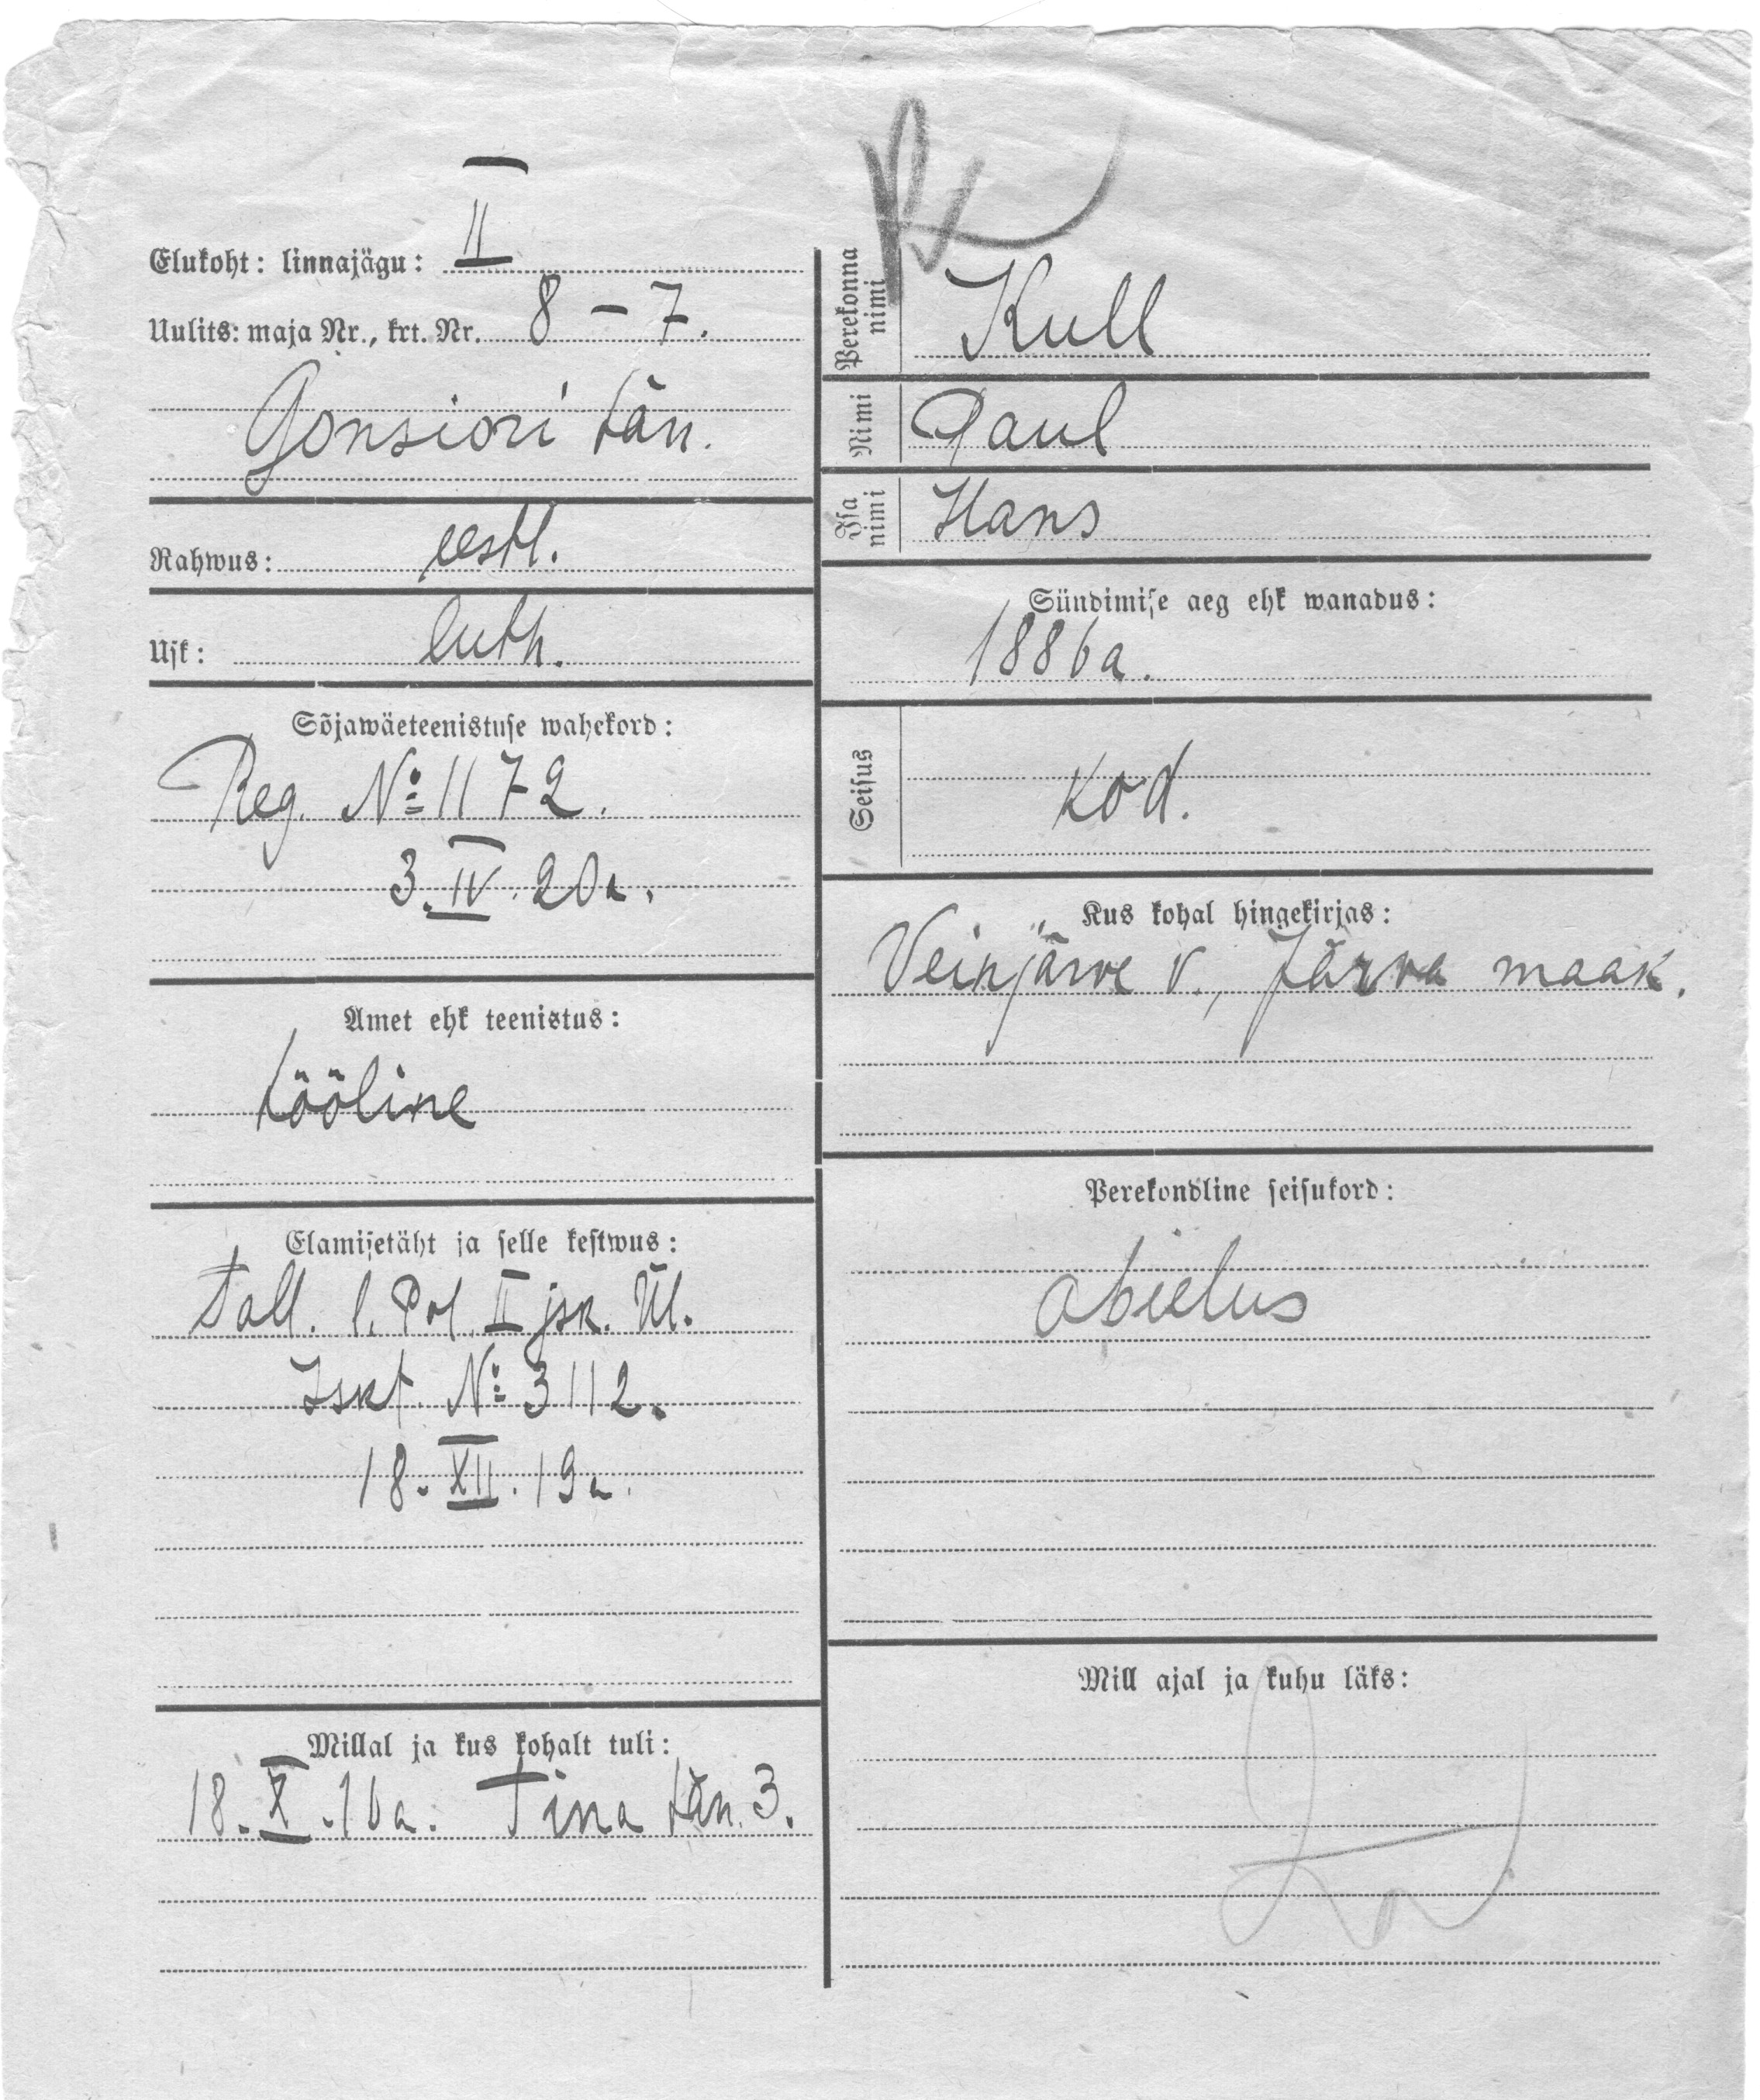 Elukoht: linnajägu: II
Uulits: maja Nr., krt. Nr. 8 – 7.
Gonsiori tän.
Rahwus: eestl.
Usk: luth.
Sõjawäeteenistuse wahekord:
Reg. № 1172.
3. IV. 20a.
Amet ehk teenistus:
tööline
Elamisetäht ja selle kestwus:
Tall. l. Pol. II jsk. Ül.
Iskt. № 3112.
18. XII. 19a.
Millal ja kus kohalt tuli:
18. X. 16a. Tina tän. 3.
Perekonna nimi Kull
Nimi Paul
Isa nimi Hans
Sündimise aeg ehk wanadus:
1886a.
Seisus
kod.
Kus kohal hingekirjas:
Veinjärve v., Järva maak.
Perekondline seisukord:
abielus
Mill ajal ja kuhu läks: